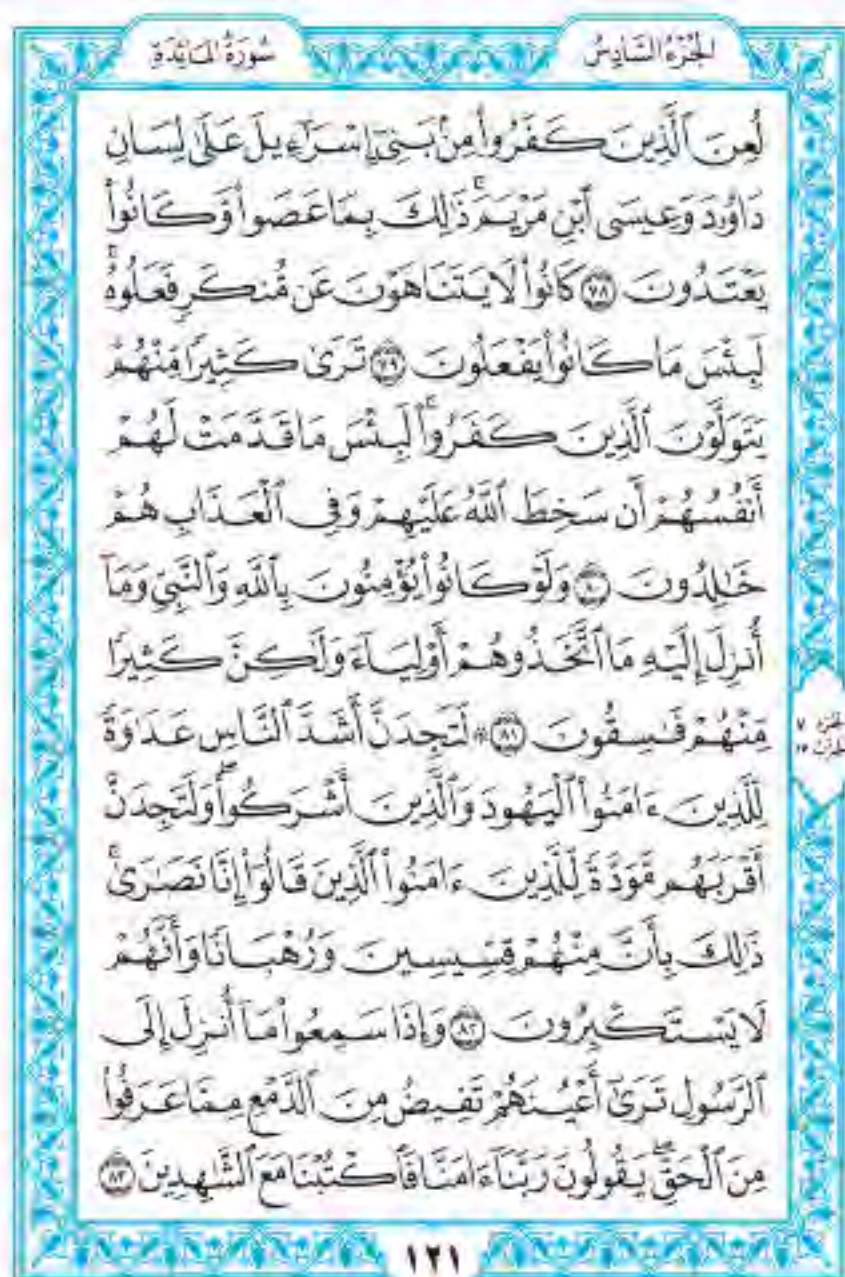 الجزء السادس
سورة المائدة
لُعِنَ ٱلَّذِينَ كَفَرُوا۟ مِنۢ بَنِىٓ إِسْرَٰٓءِيلَ عَلَىٰ لِسَانِ
دَاوُۥدَ وَعِيسَى ٱبْنِ مَرْيَمَ ۚ ذَٰلِكَ بِمَا عَصَوا۟ وَّكَانُوا۟
يَعْتَدُونَ ﴿٧٨﴾ كَانُوا۟ لَا يَتَنَاهَوْنَ عَن مُّنكَرٍ فَعَلُوهُ ۚ
لَبِئْسَ مَا كَانُوا۟ يَفْعَلُونَ ﴿٧٩﴾ تَرَىٰ كَثِيرًا مِّنْهُمْ
يَتَوَلَّوْنَ ٱلَّذِينَ كَفَرُوا۟ ۚ لَبِئْسَ مَا قَدَّمَتْ لَهُمْ
أَنفُسُهُمْ أَن سَخِطَ ٱللَّهُ عَلَيْهِمْ وَفِى ٱلْعَذَابِ هُمْ
خَٰلِدُونَ ﴿٨٠﴾ وَلَوْ كَانُوا۟ يُؤْمِنُونَ بِٱللَّهِ وَٱلنَّبِىِّ وَمَآ
أُنزِلَ إِلَيْهِ مَا ٱتَّخَذُوهُمْ أَوْلِيَآءَ وَلَٰكِنَّ كَثِيرًا
مِّنْهُمْ فَٰسِقُونَ ﴿٨١﴾ ۞ لَتَجِدَنَّ أَشَدَّ ٱلنَّاسِ عَدَٰوَةً
لِّلَّذِينَ ءَامَنُوا۟ ٱلْيَهُودَ وَٱلَّذِينَ أَشْرَكُوا۟ ۖ وَلَتَجِدَنَّ
أَقْرَبَهُم مَّوَدَّةً لِّلَّذِينَ ءَامَنُوا۟ ٱلَّذِينَ قَالُوٓا۟ إِنَّا نَصَٰرَىٰ ۚ
ذَٰلِكَ بِأَنَّ مِنْهُمْ قِسِّيسِينَ وَرُهْبَانًا وَأَنَّهُمْ
لَا يَسْتَكْبِرُونَ ﴿٨٢﴾ وَإِذَا سَمِعُوا۟ مَآ أُنزِلَ إِلَى
ٱلرَّسُولِ تَرَىٰٓ أَعْيُنَهُمْ تَفِيضُ مِنَ ٱلدَّمْعِ مِمَّا عَرَفُوا۟
مِنَ ٱلْحَقِّ ۖ يَقُولُونَ رَبَّنَآ ءَامَنَّا فَٱكْتُبْنَا مَعَ ٱلشَّٰهِدِينَ ﴿٨٣﴾
الجزء ٧
الحزب ١٣
١٢١